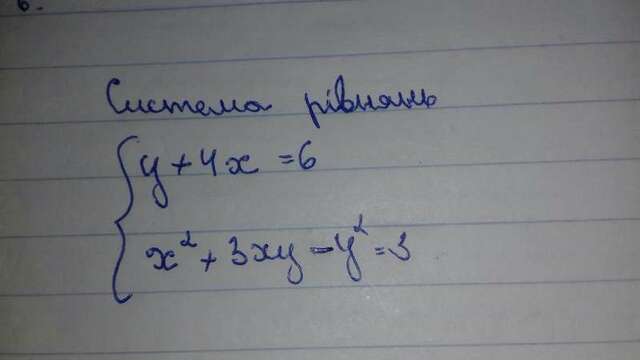 6.
Система рівнянь
y + 4x = 6
x² + 3xy - y² = 3